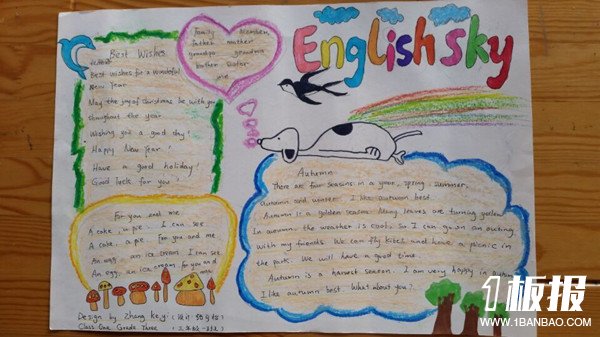 English sky
Family Member
father mother
grandpa grandma
brother sister
Best Wishes
Best wishes for a wonderful
New Year.
May the joy of Christmas be with you
throughout the year.
Wishing you a good day!
Happy New Year!
Have a good holiday!
Good luck for you!
For you and me
A cake, a pie, I can see
A cake, a pie, for you and me
An egg, an ice cream I can see
An egg, an ice cream for you and
me
Autumn
There are four seasons in a year, spring, summer,
autumn and winter. I like autumn best.
Autumn is a golden season. Many leaves are turning yellow.
In autumn, the weather is cool. So I can go on an outing
with my friends. We can fly kite and have a picnic in
the park. We will have a good time.
Autumn is a harvest season. I am very happy in autumn.
I like autumn best. What about you?
Design by Zhang
Class One Grade Three
1板报
WWW.1BANBAO.COM